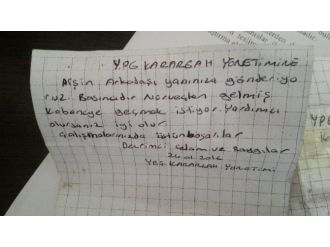 YPG KARARGAH YÖNETİMİNE
Arkadaşı yanınıza gönderiyo
ruz. Basıncıdır Norveçten gelmiş
Kobaneye geçmek istiyor. Yardımcı
olursanız iyi olur
Çalışmalarınızda üstün başarılar
Devrimci selam ve saygılar
YPG KARARGAH YÖNETİMİ
YPG